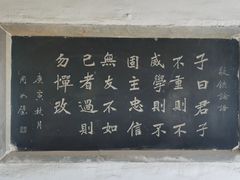 敬錄論語
子曰君子
不重則不
威學則不
固主忠信
無友不如
己者過則
勿憚改
庚寅秋月